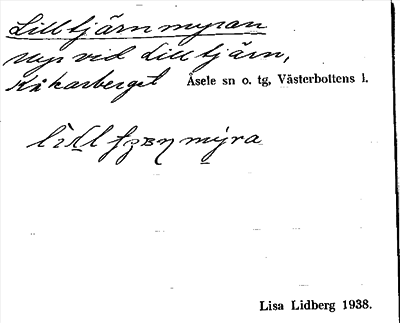 Lilltjärnmyran
Myr vid Lilltjärn,
Kåkarberget Åsele sn o. tg, Västerbottens l.
mýra
Lisa Lidberg 1938.